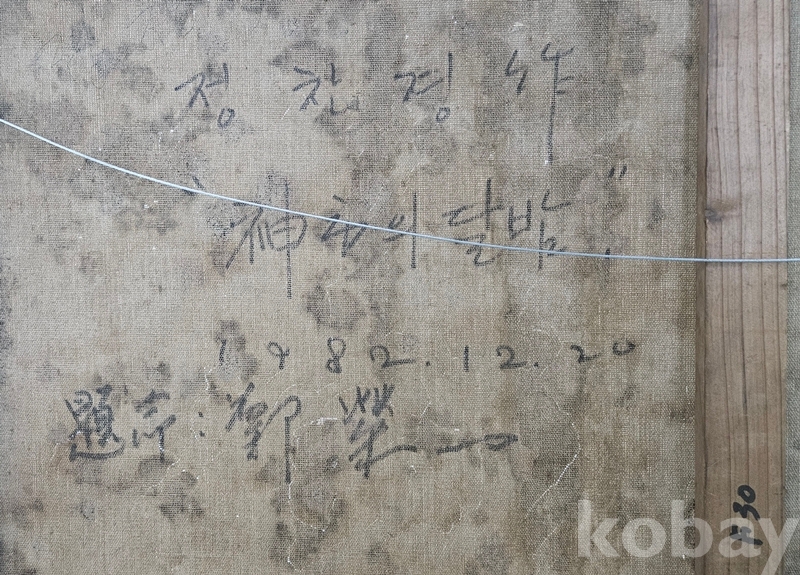 정 찬 경 作
"神 의 달밤"
1982.12.20
題 :
F 30
kobay